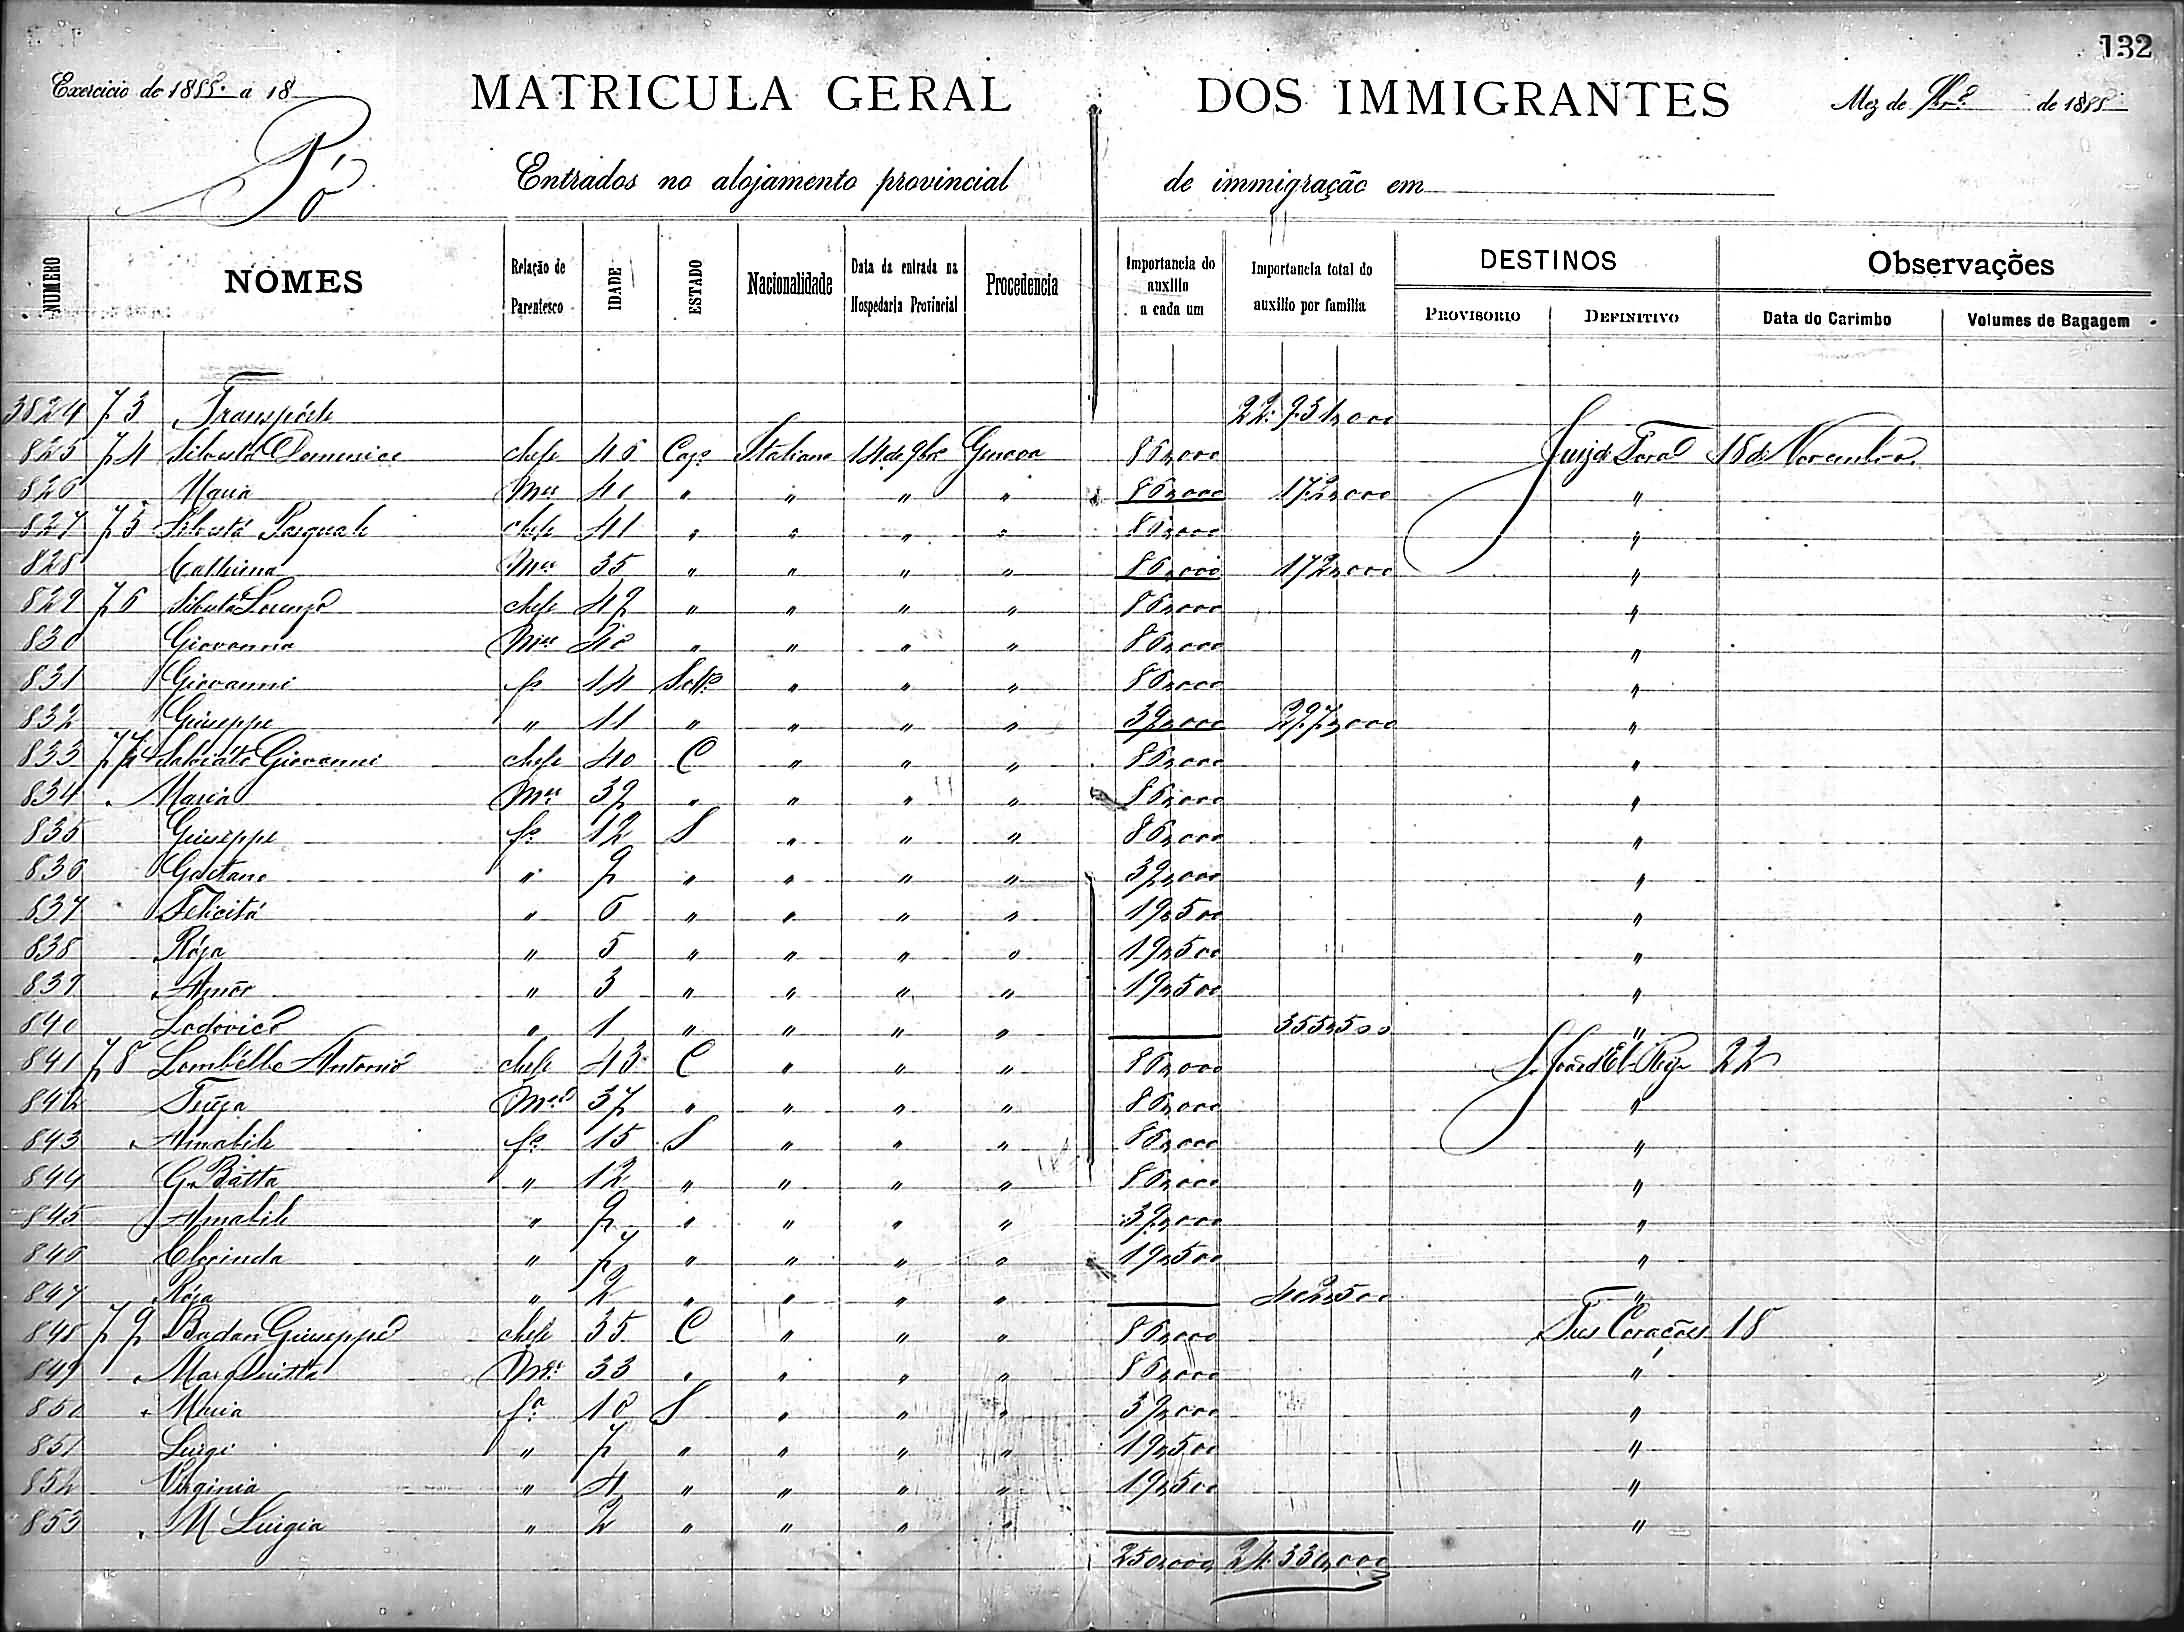 132
Exercicio de 1888 a 18
MATRICULA GERAL DOS IMMIGRANTES
Mez de 9br.º de 1888
Pó
Entrados no alojamento provincial de immigração em
NUMERO NOMES Relação de Parentesco IDADE ESTADO Nacionalidade Data da entrada na Hospedaria Provincial Procedencia Importancia do auxilio a cada um Importancia total do auxilio por familia DESTINOS Observações
PROVISORIO DEFINITIVO Data do Carimbo Volumes de Bagagem
3824 73 Transporte 22:931,000
825 74 Domenico chefe 46 Cazº Italiano 14 de 9bro Genova 86,000 Juiz de Fora 18 de Novembro
826 Maria Mer 40 " " " " 86,000 172,000 "
827 75 Pasquale chefe 41 " " " " 86,000 "
828 Catherina Mer 35 " " " " 86,000 172,000 "
829 76 Lorenzo chefe 49 " " " " 86,000 "
830 Giovanna Mer 40 " " " " 86,000 "
831 Giovanni fº 14 Soltº " " " 86,000 "
832 Giuseppe " 11 " " " " 39,000 297,000 "
833 77 Giovanni chefe 40 C " " " 86,000 "
834 Maria Mer 39 " " " " 86,000 "
835 Giuseppe fº 12 S " " " 86,000 "
836 Gaetano " 9 " " " " 39,000 "
837 Felicitá " 6 " " " " 19,500 "
838 Roza " 5 " " " " 19,500 "
839 " 3 " " " " 19,500 "
840 Lodovico " 1 " " " " 355,500 "
841 78 Lombello Antonio chefe 43 C " " " 86,000 S. João d'El-Rey 22
842 Mer 37 " " " " 86,000 "
843 Amabile fº 15 S " " " 86,000 "
844 G. Batta " 12 " " " " 86,000 "
845 Amabile " 9 " " " " 39,000 "
846 Clorinda " 7 " " " " 19,500 "
847 Roza " 2 " " " " 402,500 "
848 79 Badan Giuseppe chefe 35 C " " " 86,000 Tres Corações 18
849 Margheritta Mer 33 " " " " 86,000 "
850 Maria fª 10 S " " " 39,000 "
851 Luigi " 7 " " " " 19,500 "
852 Virginia " 4 " " " " 19,500 "
853 M Luigia " 2 " " " " "
250,000 24:330,000